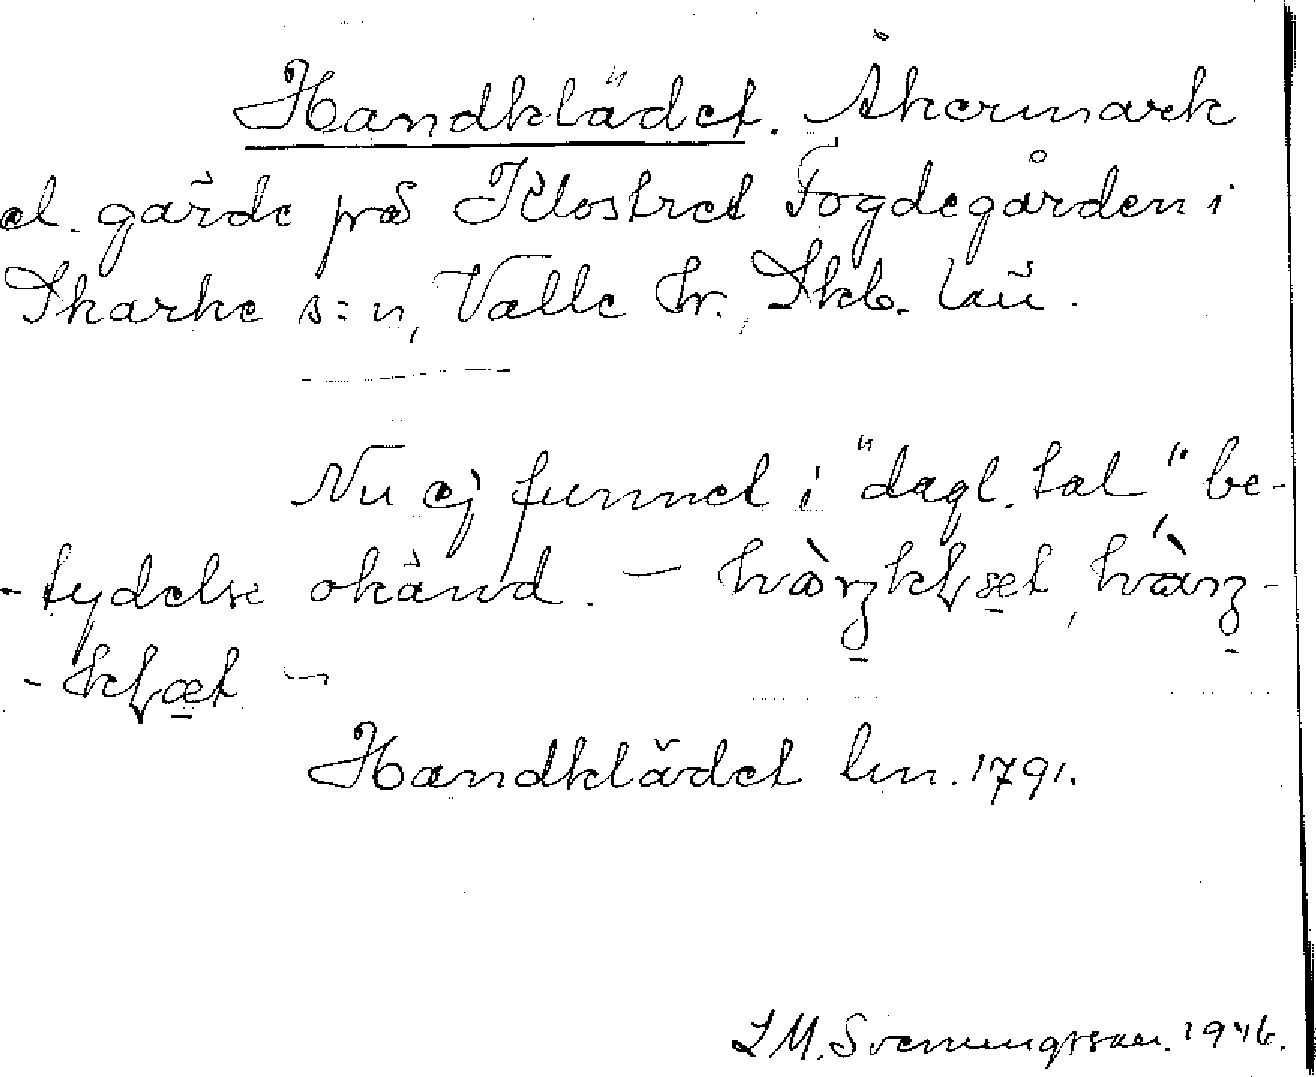 Handklädet. Åkermark
el. gärde på Klostret Fogdegården i
Skarke s:n, Valle hr., Skb. län.
Nu ej funnet i "dagl. tal" be-
-tydelse okänd. -
Handklädet lm. 1791.
L M. Svenungsson. 1946.